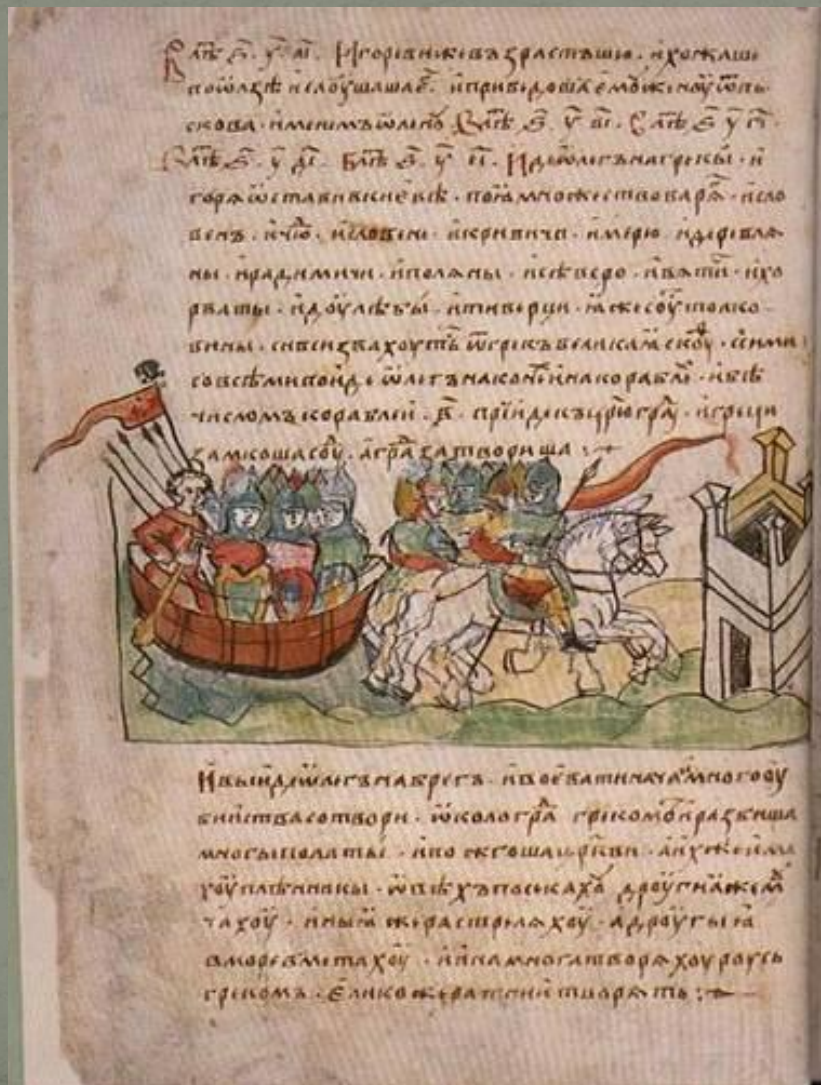 В лѣⷮ ҂s҃. у҃. а҃і. Игореви же възрастъшю. и хожаше
по ѡлзѣ и слоушаша еⷢ. и приведоша ємоу женоу ѿ пь
скова. именемъ ѡленоу В лѣⷮ ҂s҃. у҃ в҃і. В лѣⷮ ҂s҃ у҃ г҃і.
В лѣⷮ ҂s҃. у҃ д҃і. В лѣⷮ ҂s҃. у҃ є҃і. Иде ѡлегъ на грекы. и
горѧ ѡстави в киевѣ. поѩ множество варѧⷢ. и сло
венъ. и чюⷣ. и словене. и кривичи. и мерю. и деревлѧ
ны. и радимичи. и полѧны. и сѣверо. и вѧтичи. и хо
рваты. и доулѣбы. и тиверци. ꙗже соуⷮ толко
вины. си вси звахоутьⷭ ѿ грекъ великаꙗ скоуⷴ. с сими
со всѣми поиде ѡлегъ на конеⷯ и на кораблеⷯ. и бѣ
числомъ кораблеи. в҃. приіде къ црюгрⷣа. и греци
замкоша соуⷣ. а граⷣ затвориша
И выиде ѡлегъ на брегъ. и воевати нача. и много оу
биитва сотвори. ѡколо граⷣ грекомъ. и разбиша
многы полаты. и пожгоша церкви. а их же има
хоу плѣнникы. ѡвѣхъ посѣкахоу дроугиꙗ же моу
чахоу. иныꙗ же растрелѧхоу. а дроугыꙗ
в море вметахоу. и ина многа творѧхоу роусь
грекомъ. Елико же ратнии творѧть